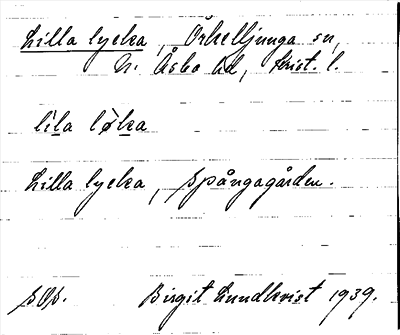 Lilla lycka, Örkelljunga sn,
N. Åsbo hd, Krist. l.
lìla lø̀ka
Lilla lycka, Spångagården.
Birgit Lundkvist 1939.